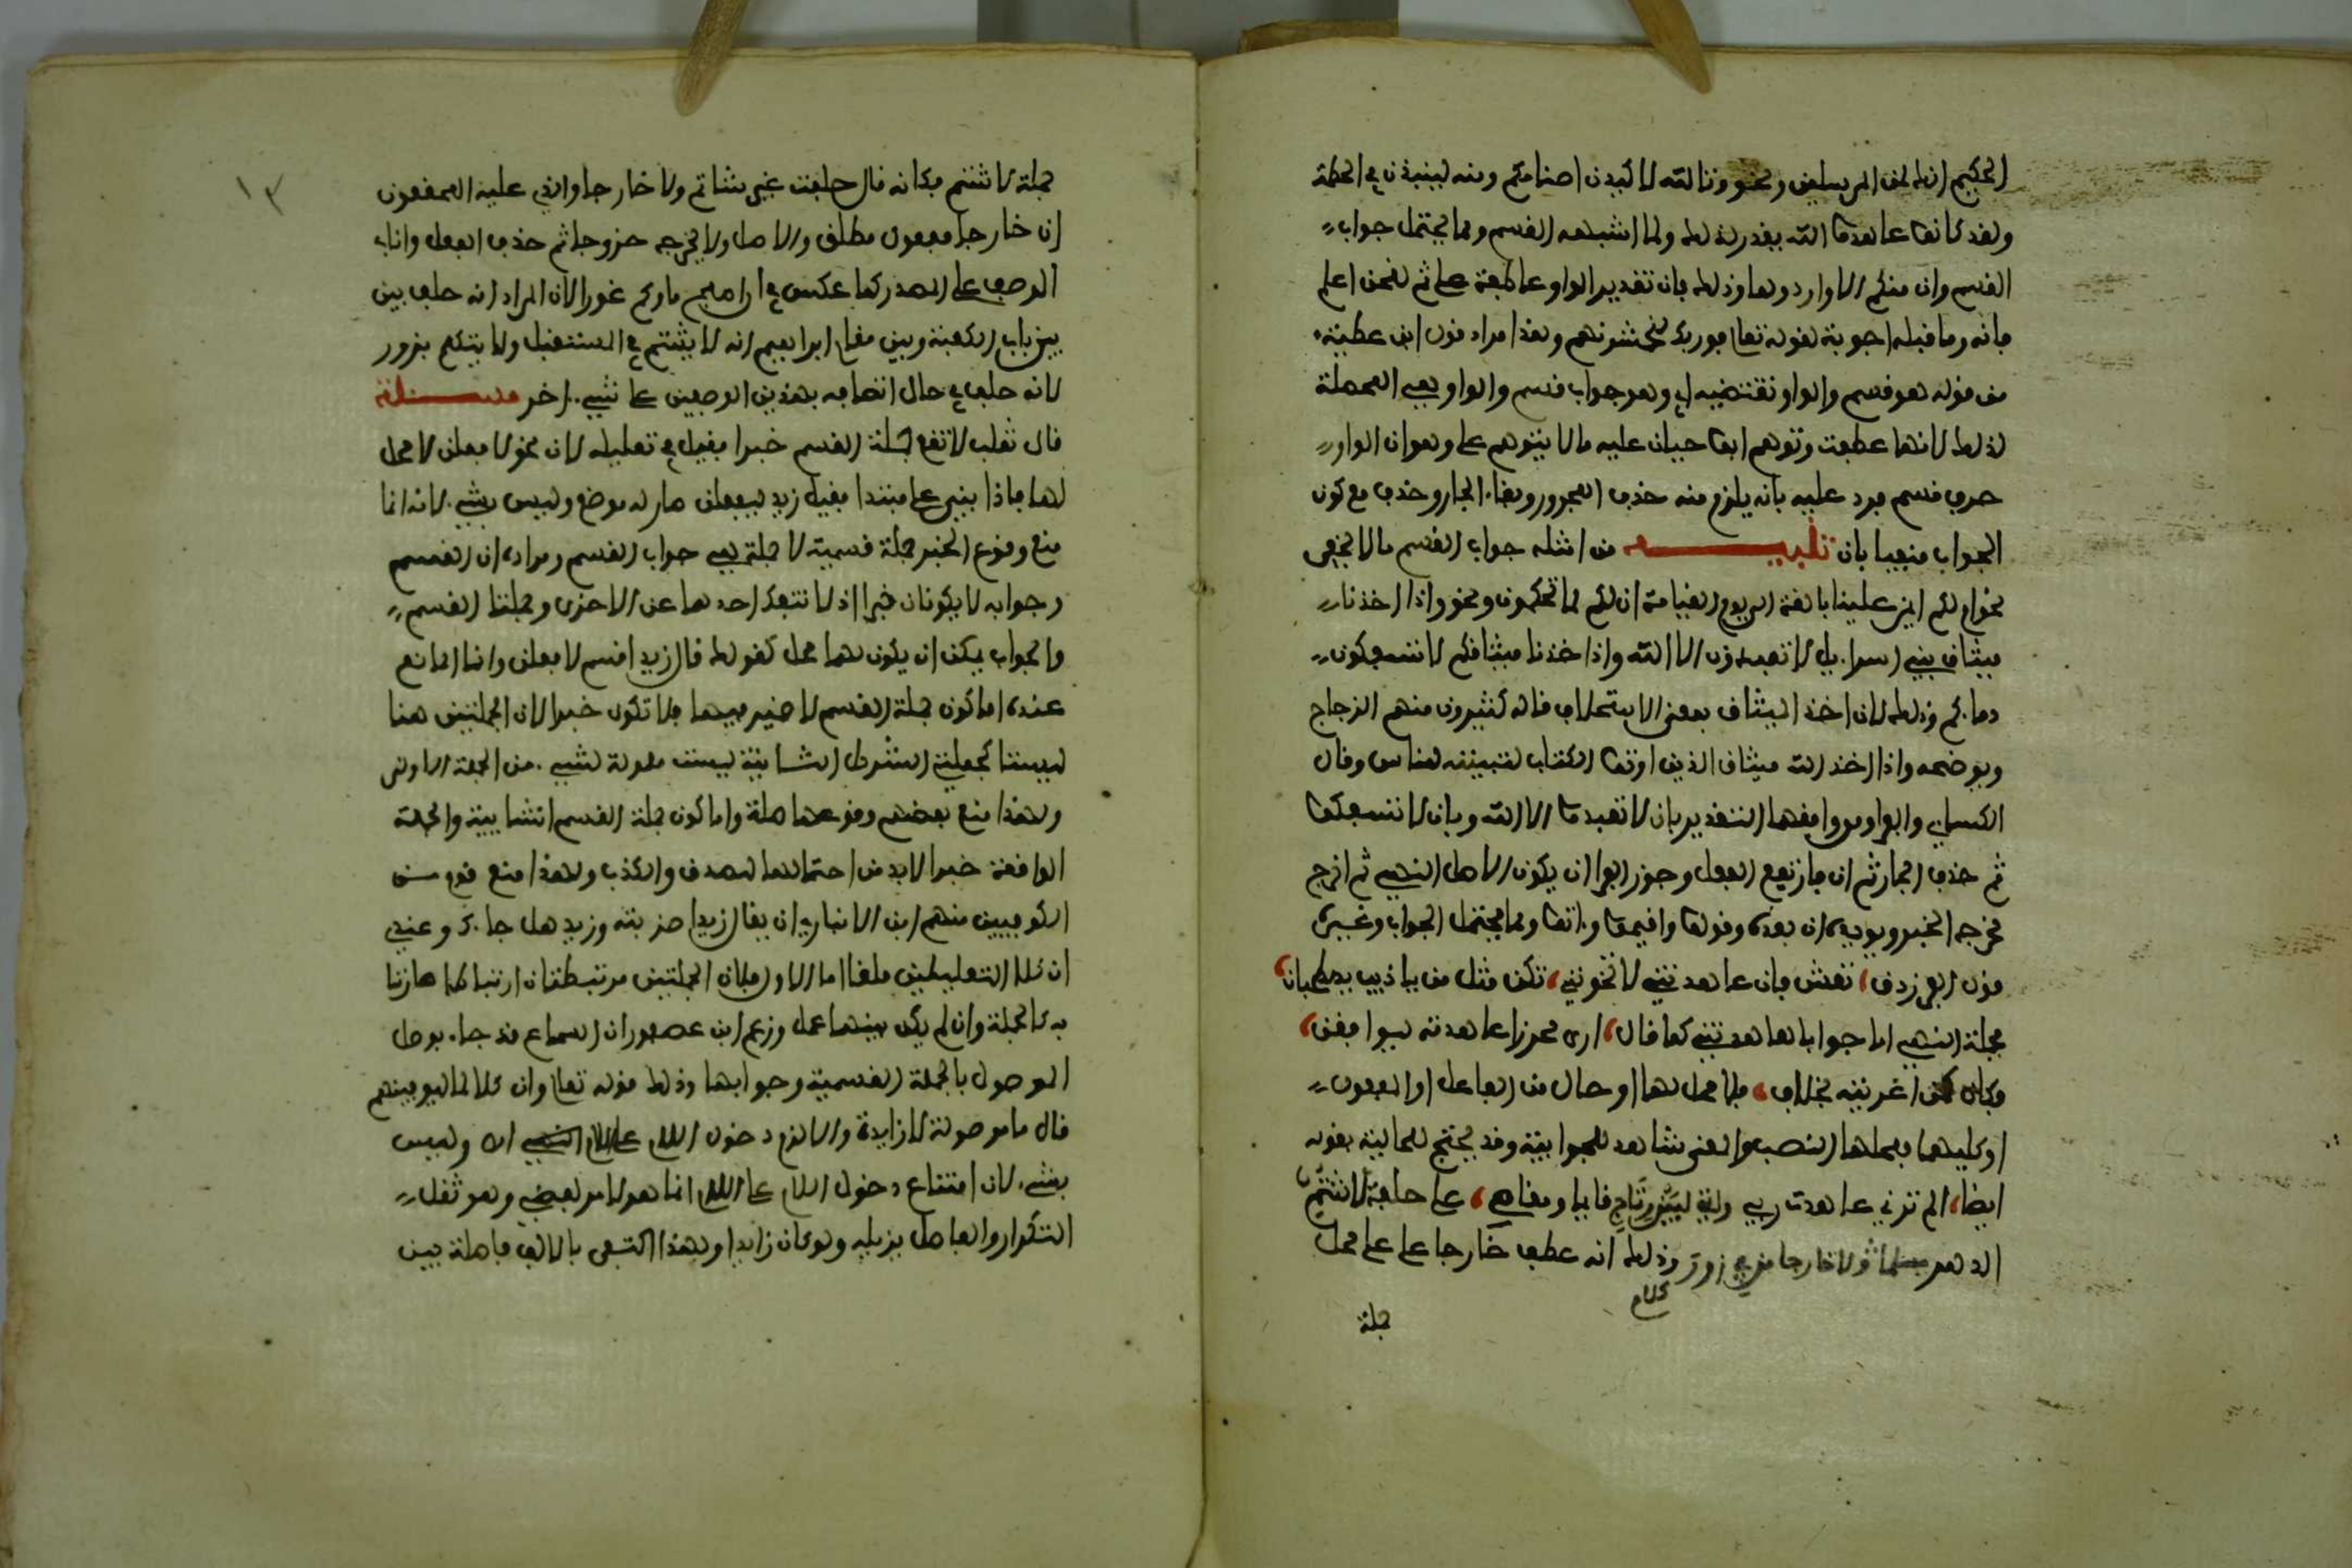 الحكيم انك لمن المرسلين ونحو وتالله لاكيدن اصنامكم ومنه لينبذن في الحطمة
ولقد كانوا عاهدوا الله يقدر لذلك ولما اشبهه القسم ومما يحتمل جواب
القسم وان منكم الا واردها وذلك بان تقدير الواو عاطفة على ثم لنحن اعلم
فانه وما قبله اجوبة لقوله تعالى فوربك لنحشرنهم وهذا مراد قول ابن عطية
من قوله هو قسم والواو تقتضيه اي وهو جواب قسم والواو هي المحصلة
لذلك لانها عطفت وتوهم ابو حيان عليه ما لا يتوهم على وهو ان الواو
حرف قسم فرد عليه بانه يلزم منه حذف المجرور وبقاء الجار وحذف مع كون
الجواب منفيا بان تنبيه من امثلة جواب القسم ما لا يخفى
نحو ام لكم ايمن علينا بالغة الى يوم القيامة ان لكم لما تحكمون ونحو واذ اخذنا
ميثاق بني اسراءيل لا تعبدون الا الله واذ اخذنا ميثاقكم لا تسفكون
دماءكم وذلك لان اخذ الميثاق بمعنى الاستحلاف قاله كثيرون منهم الزجاج
ويوضحه واذ اخذ الله ميثاق الذين اوتوا الكتاب لتبيننه للناس وقال
الكسائي والفراء ومن وافقهما التقدير بان لا تعبدوا الا الله وبان لا تسفكوا
ثم حذف الجار ثم ان فارتفع الفعل وجوز الفراء ان يكون الاصل النهي ثم اخرج
مخرج الخبر ويويده ان بعده وقولوا واقيموا وءاتوا ومما يحتمل الجواب وغيره
قول الفرزدق، تعش فان عاهدتني لا تخونني، نكن مثل من يا ذيب يصطحبان،
فجملة النهي اما جوابا لعاهدتني كما قال، ارى محرزا عاهدته ليوافقن،
فكان كمن اغريته بخلاف، فلا محل لها او حال من الفاعل او المفعول
او كليهما فمحلها النصب والمعنى شاهد للجوابية وقد يحتج للحالية بقوله
ايضا، الم ترني عاهدت ربي وانني لبين رتاج قايما ومقام، على حلفة لا اشتم
الدهر مسلما ولا خارجا من في زور كلام وذلك انه عطف خارجا على محل
جملة
١٣
جملة لا اشتم فكانه قال حلفت غير شاتم ولا خارجا والذي عليه المحققون
ان خارجا مفعول مطلق والاصل ولا يخرج خروجا ثم حذف الفعل واناب
الوصف على المصدر كما عكس في ان اصبح ماوكم غورا لان المراد انه حلف بين
بين باب الكعبة وبين مقام ابراهيم انه لا يشتم في المستقبل ولا يتكلم بزور
لانه حلف في حال اتصافه بهذين الوصفين على شيء ءاخر مسئلة
قال ثعلب لا تقع جملة القسم خبرا فقيل في تعليله لان نحو لافعلن لا محل
لها فاذا بني على مبتدا فقيل زيد ليفعلن صار له موضع وليس بشيء لانه انما
منع وقوع الخبر جملة قسمية لا جملة هي جواب القسم ومراده ان القسم
وجوابه لا يكونان خبرا اذ لا تنفك احدهما عن الاخرى وجملتا القسم
والجواب يمكن ان يكون لهما محل كقولك قال زيد اقسم لافعلن وانما المانع
عنده اما كون جملة القسم لا ضمير فيها فلا تكون خبرا لان الجملتين هنا
ليستا كجملتي الشرط الثانية ليست معمولة لشيء من الجملة الاولى
ولهذا منع بعضهم وقوعها صلة واما كون جملة القسم انشايية والجملة
الواقعة خبرا لابد من احتمالها للصدق والكذب ولهذا منع قوم من
الكوفيين منهم ابن الانباري ان يقال زيد اضربته وزيد هل جاءك وعندي
ان كلا التعليلين ملغا اما الاول فلان الجملتين مرتبطتان ارتباطا صارتا
به كالجملة وان لم يكن بينهما عمل وزعم ابن عصفور ان السماع قد جاء بوصل
الموصول بالجملة القسمية وجوابها وذلك قوله تعالى وان كلا لما ليوفينهم
قال ما موصولة لا زايدة والا لزم دخول اللام على اللام انتهى وليس
بشيء لان امتناع دخول اللام على اللام انما هو لامر لفظي وهو ثقل
التكرار والفاصل يزيله ولو كان زايدا ولهذا اكتفى بالالف فاصلة بين